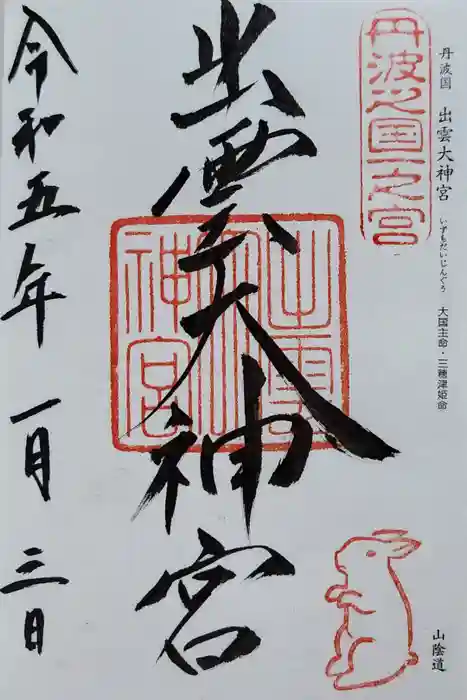 丹波之国一之宮
丹波国 出雲大神宮 いずもだいじんぐう 大国主命・三穂津姫命
山陰道
出雲大神宮
出雲大神宮
令和五年 一月 三日